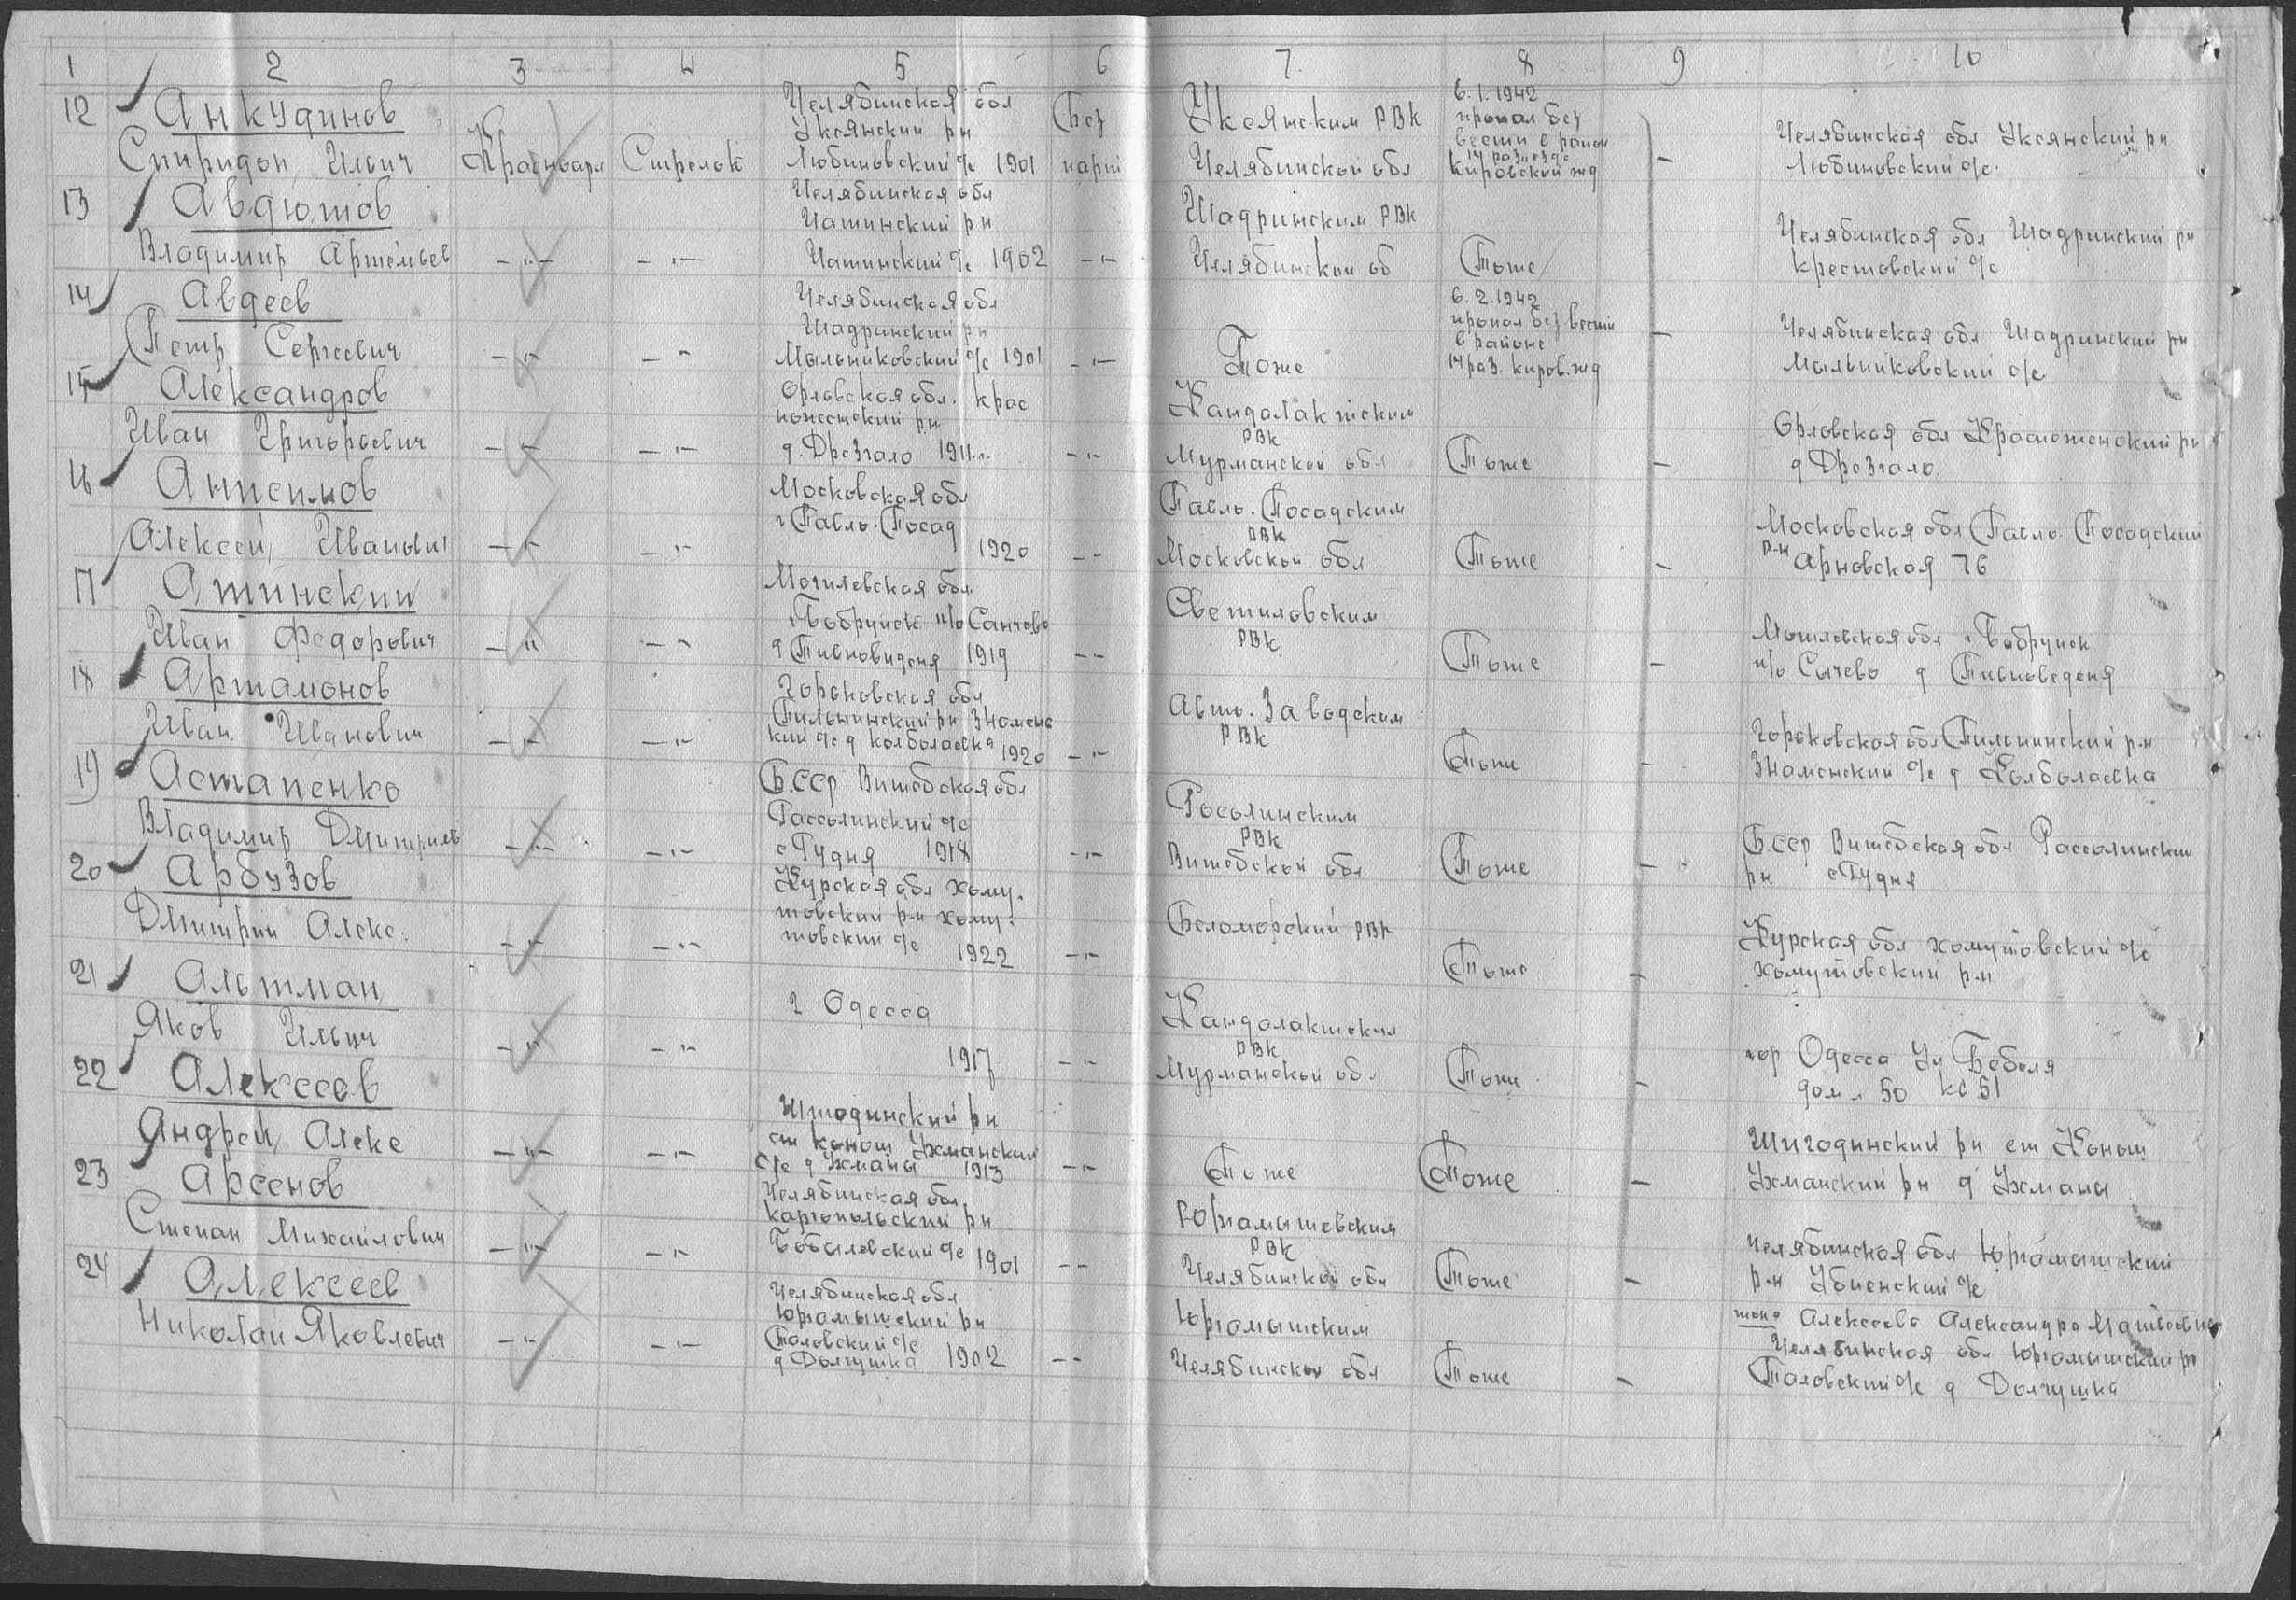 1 2 3 4 5 6 7 8 9 10
12 Анкудинов
Спиридон Ильич
Красноарм
Стрелок
Челябинская обл
Уксянский рн
Любимовский с/с 1901
Без
парт
Уксянским РВК
Челябинской обл
6.1.1942
пропал без
вести в район
14 разъезда
Кировской жд
–
Челябинская обл Уксянский рн
Любимовский с/с.
13 Авдюшов
Владимир Артемьев
–"–
–"–
Челябинская обл
Чашинский рн
Чашинский с/с 1902
–"–
Шадринским РВК
Челябинской об
Тоже
Челябинская обл Шадринский рн
Крестовский с/с
14 Авдеев
Петр Сергеевич
–"–
–"
Челябинская обл
Шадринский рн
Мыльниковский с/с 1901
–"–
Тоже
6.2.1942
пропал без вести
в районе
14 раз. киров. жд
–
Челябинская обл Шадринский рн
Мыльниковский с/с
15 Александров
Иван Григорьевич
–"–
–"–
Орловская обл. Крас
рн
д. Дрозгало 1911г.
–"–
Кандалакшским
РВК
Мурманской обл
Тоже
–
Орловская обл рн
д Дрозгало.
16 Анисимов
Алексей Иванович
–"–
–"
Московская обл
г Павль. Посад
1920
–"
Павль. Посадским
РВК
Московской обл
Тоже
–
Московская обл Павло Посадский
р-н Арновская 76
17 Ашинский
Иван Федорович
–"
–"
Могилевская обл.
г. Бобруйск п/о
д 1919
––
Светиловским
РВК
Тоже
–
Могилевская обл г Бобруйск
п/о Сычево д
18 Артамонов
Иван Иванович
–"–
–"–
Горьковская обл
Пильнинский рн Знаменс
кий с/с д Колболаевка 1920
–"
Авто. Заводским
РВК
Тоже
–
Горьковская обл Пильнинский р-н
Знаменский с/с д Колболаевка
19 Астапенко
Владимир Дмитриев
–"–
–"–
БССР Витебская обл
Рассолинский с/с
с Гудня 1918
–"–
Росолинским
РВК
Витебской обл
Тоже
–
БССР Витебская обл Рассолинским
рн с Гудня
20 Арбузов
Дмитрий Алекс.
–"–
–"–
Курская обл Хому.
товский р-н хому.
товский с/с 1922
–"–
Беломорский РВК
Тоже
–
Курская обл Хомутовский с/с
Хомутовский р-н
21 Альтман
Яков Ильич
–"–
–"–
г Одесса
1917
–"–
Кандалакшским
РВК
Мурманской обл
Тоже
–
гор Одесса Ул Бебеля
дом № 50 кв 51
22 Алексеев
Андрей Алекс
–"–
–"–
рн
ст Конош Ухманский
с/с д Ухманы 1913
–"–
Тоже
Тоже
–
рн ст Конош
Ухманский рн д Ухманы
23 Арсенов
Степан Михайлович
–"–
–"–
Челябинская обл.
Каргопольский рн
с/с 1901
––
Юргамышевским
РВК
Челябинской обл
Тоже
–
Челябинская обл Юргамышский
р-н с/с
24 Алексеев
Николай Яковлевич
–"–
–"–
Челябинская обл
Юргамышский рн
Таловский с/с
д Долгушка 1902
––
Юргамышским
Челябинской обл
Тоже
–
жена Алексеева Александра Матвеевна
Челябинская обл Юргамышский рн
Таловский с/с д Долгушка